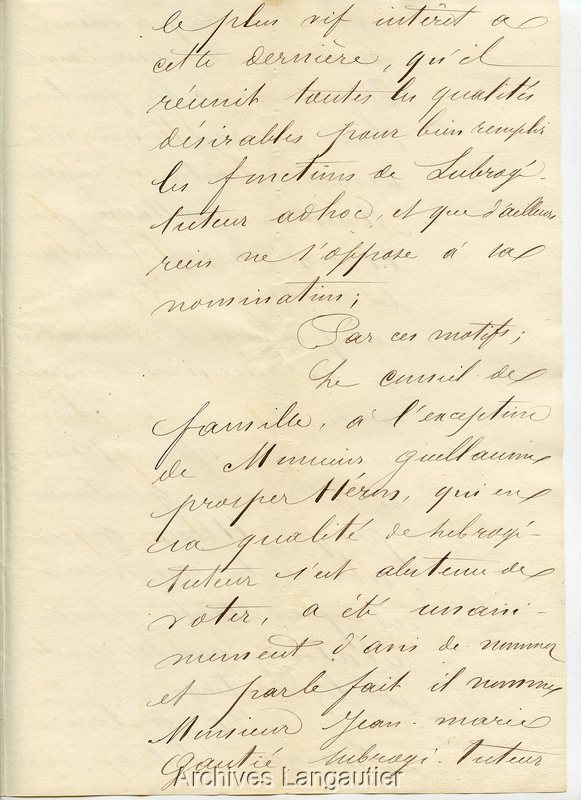 le plus vif intérêt à
cette dernière, qu'il
réunit toutes les qualités
désirables pour bien remplir
les fonctions de Subrogé-
tuteur adhoc, et que d'ailleurs
rien ne s'oppose à sa
nomination;
Par ces motifs;
Le conseil de
famille, à l'exception
de Monsieur Guillaume
prosper Héron, qui en
sa qualité de subrogé-
tuteur s'est abstenu de
voter, a été unani-
mement d'avis de nommer
et par le fait il nomme
Monsieur Jean-marie
Gautié subrogé-tuteur
Archives Langautier